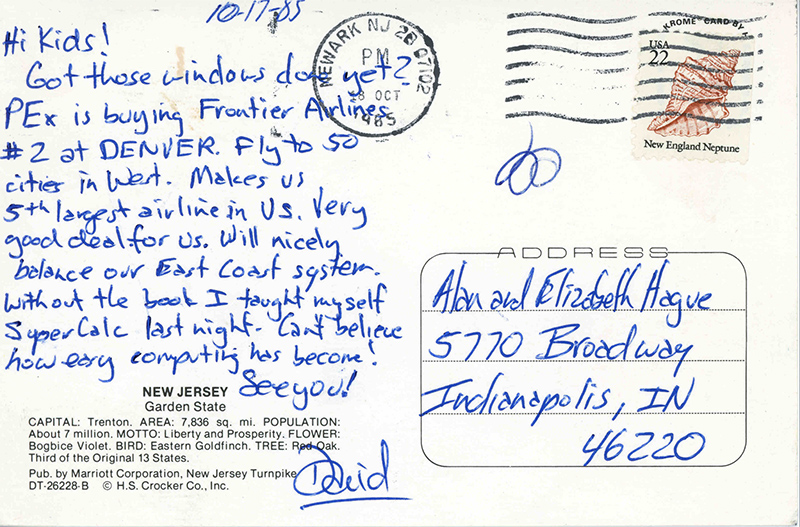 10-17-85
Hi Kids!
Got those windows done yet?
PEx is buying Frontier Airlines
#2 at DENVER. Fly to 50
cities in West. Makes us
5th largest airline in US. Very
good deal for us. Will nicely
balance our East Coast system.
Without the book I taught myself
SuperCalc last night. Can't believe
how easy computing has become!
See you!
David
NEW JERSEY
Garden State
CAPITAL: Trenton. AREA: 7,836 sq. mi. POPULATION:
About 7 million. MOTTO: Liberty and Prosperity. FLOWER:
Bogbice Violet. BIRD: Eastern Goldfinch. TREE: Red Oak.
Third of the Original 13 States.
Pub. by Marriott Corporation, New Jersey Turnpike
DT-26228-B © H.S. Crocker Co., Inc.
NEWARK NJ 07102
PM
18 OCT
1985
KROME CARD BY
USA
22
New England Neptune
ADDRESS
Alan and Elizabeth Hague
5770 Broadway
Indianapolis, IN
46220